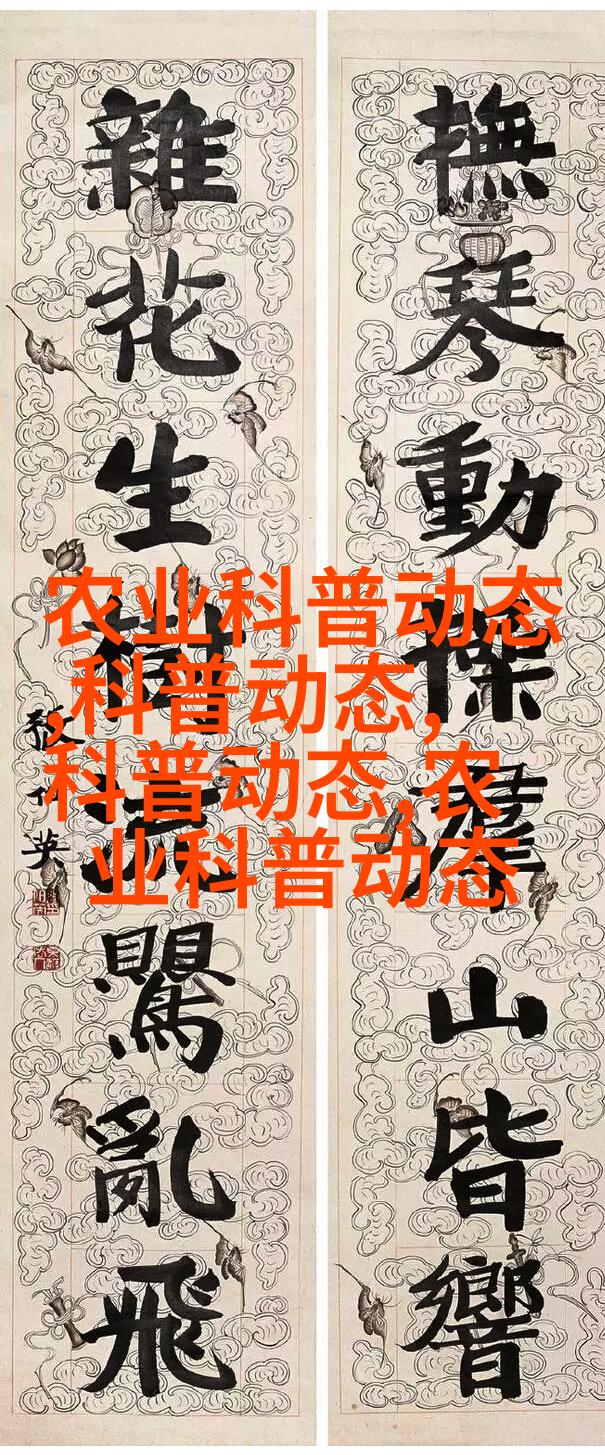 撫琴動操羣山皆響
雜花生樹流鸎亂飛
英
农业科普动态
,科普动态,
科普动态,农
业科普动态